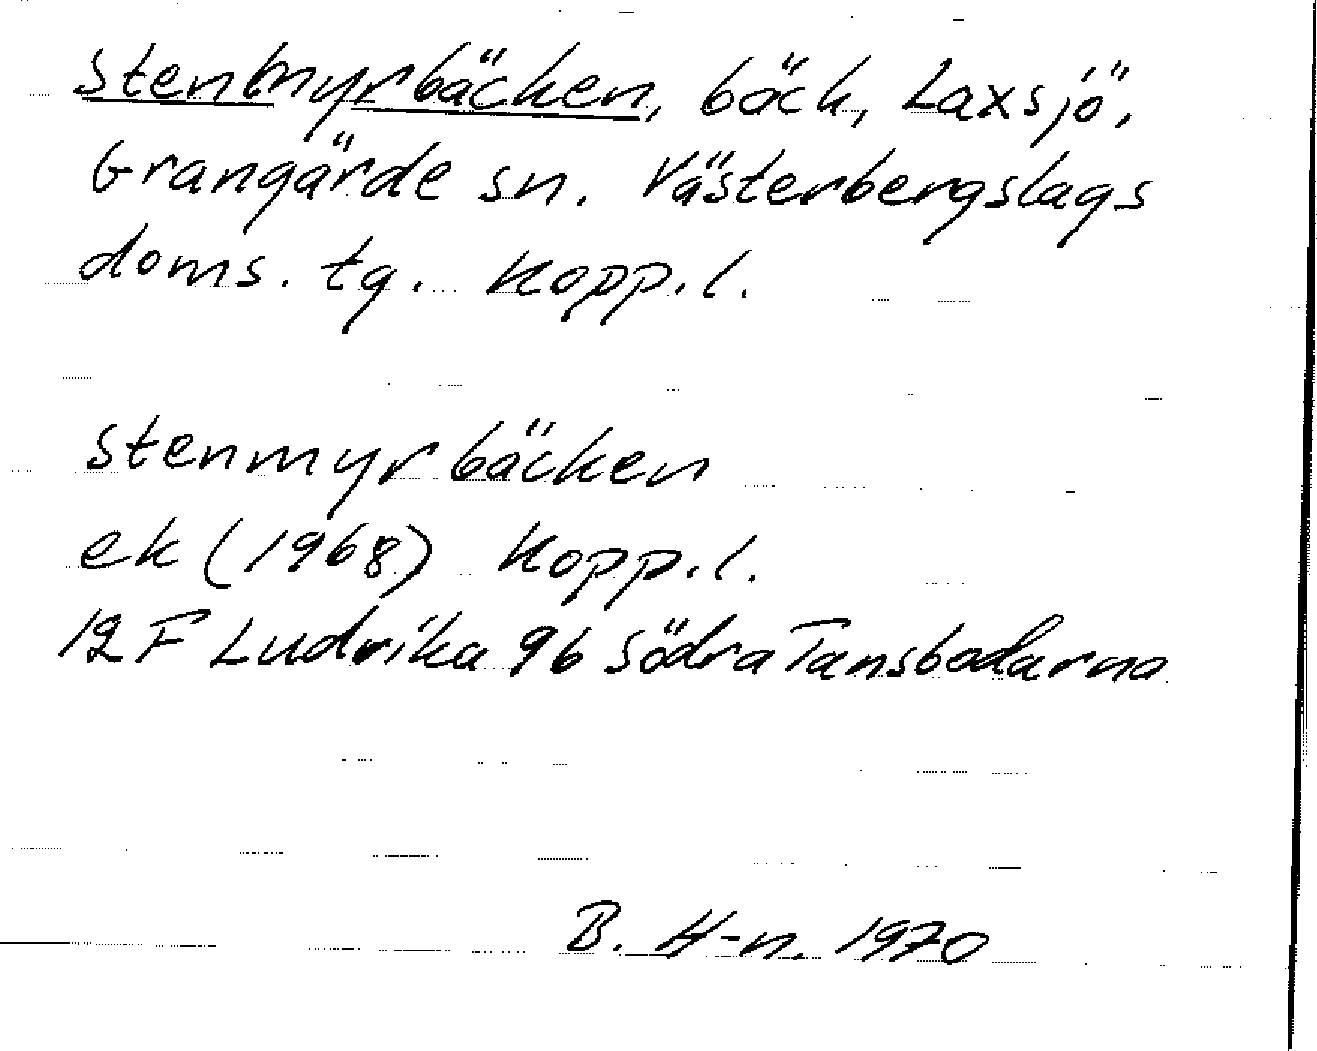 Stenmyrbäcken, bäck, Laxsjö,
Grangärde sn. Västerbergslags
doms. tg. Kopp.l.
Stenmyrbäcken
ek (1968) Kopp.l.
12F Ludvika 9b Södra Tansbodarna
B. H-n. 1970